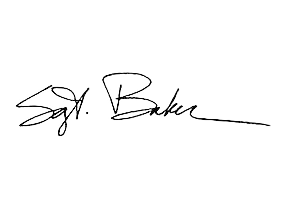 Sgt. Baker